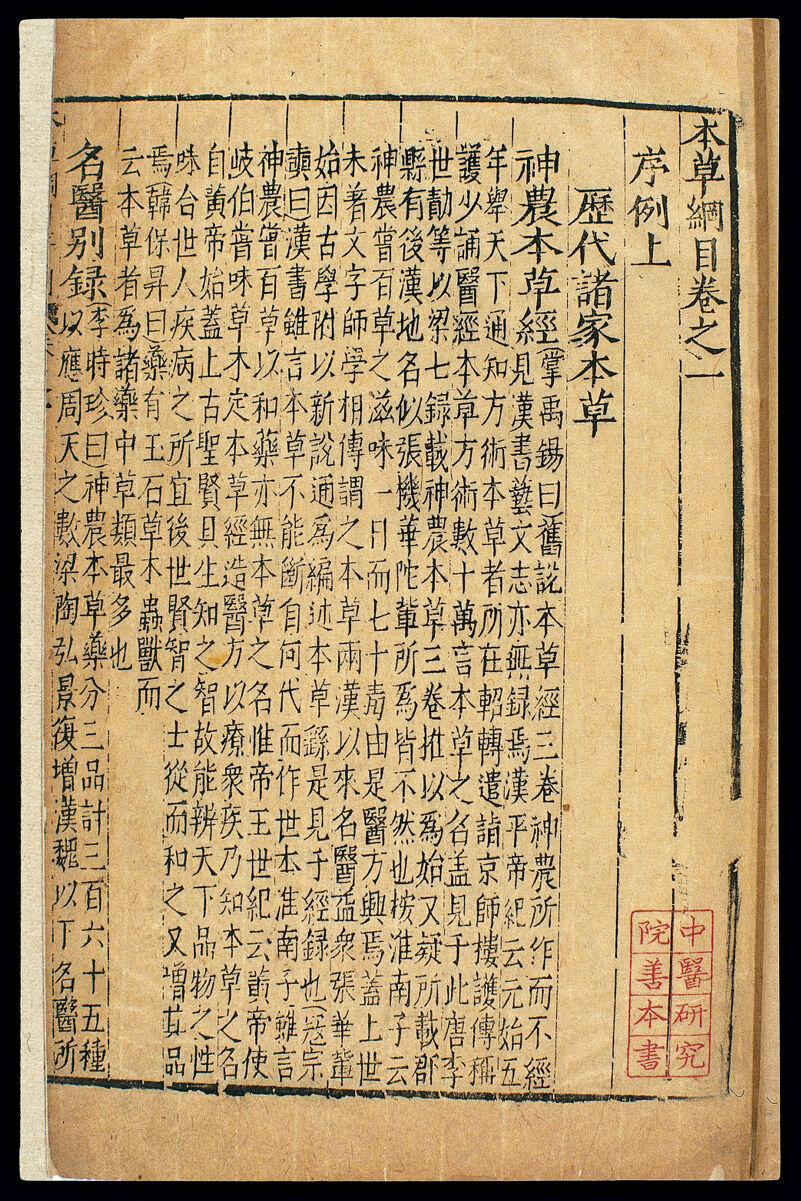 本草綱目卷之一
序例上
歷代諸家本草
神農本草經掌禹錫曰舊説本草經三卷神農所作而不經
見漢書藝文志亦無録焉漢平帝紀云元始五
年舉天下通知方術本草者所在軺轉遣詣京師摟護傳稱
護少誦醫經本草方術數十萬言本草之名盖見于此唐李
世勣等以梁七録載神農本草三卷推以為始又疑所載郡
縣有後漢地名似張機華陀輩所為皆不然也按淮南子云
神農嘗百草之滋味一日而七十毒由是醫方興焉蓋上世
未著文字師學相傳謂之本草兩漢以來名醫益衆張華輩
始因古學附以新説通為編述本草繇是見于經録也寇宗
奭曰漢書雖言本草不能斷自何代而作世本淮南子雖言
神農嘗百草以和藥亦無本草之名惟帝王世紀云黃帝使
岐伯嘗味草木定本草經造醫方以療衆疾乃知本草之名
自黃帝始蓋上古聖賢具生知之智故能辨天下品物之性
味合世人疾病之所宜後世賢智之士從而和之又增其品
焉韓保昇曰藥有玉石草木蟲獸而
云本草者為諸藥中草類最多也
名醫別録李時珍曰神農本草藥分三品計三百六十五種
以應周天之數梁陶弘景復增漢魏以下名醫所
中醫研究
院善本書